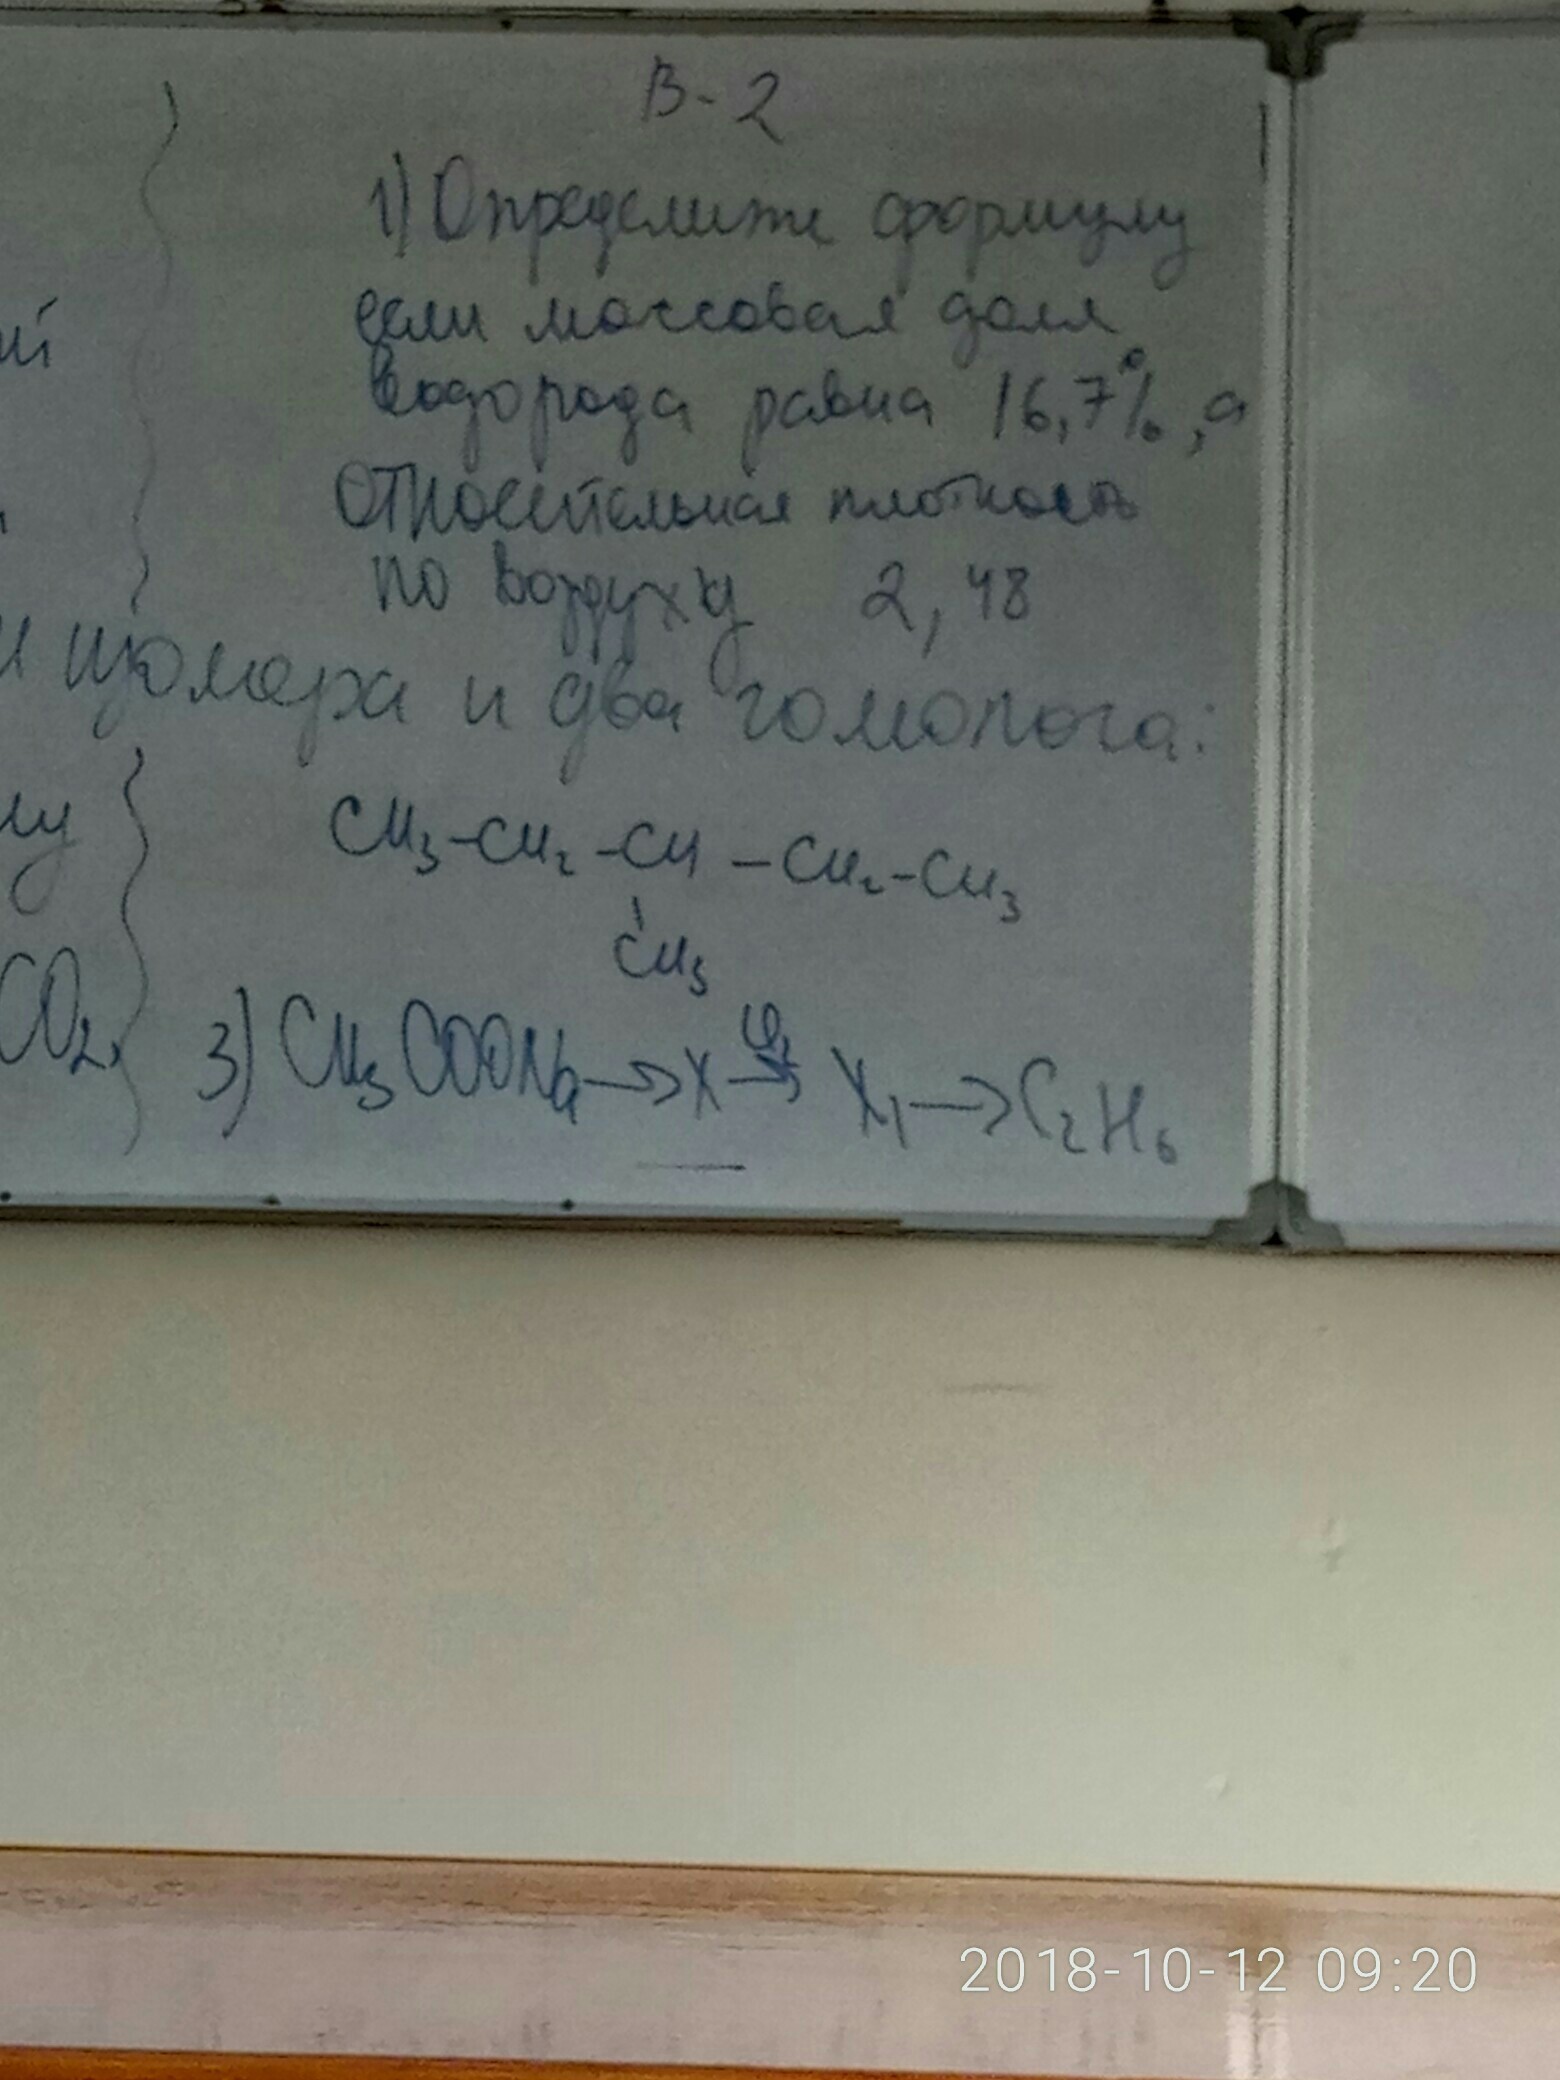 В-2
1) Определите формулу
если массовая доля
водорода равна 16,7%, а
относительная плотность
по воздуху 2,48
изомера и два гомолога:
CH₃-CH₂-CH-CH₂-CH₃
CH₃
CO₂,
3) CH₃COONa→X→X₁→C₂H₆
2018-10-12 09:20